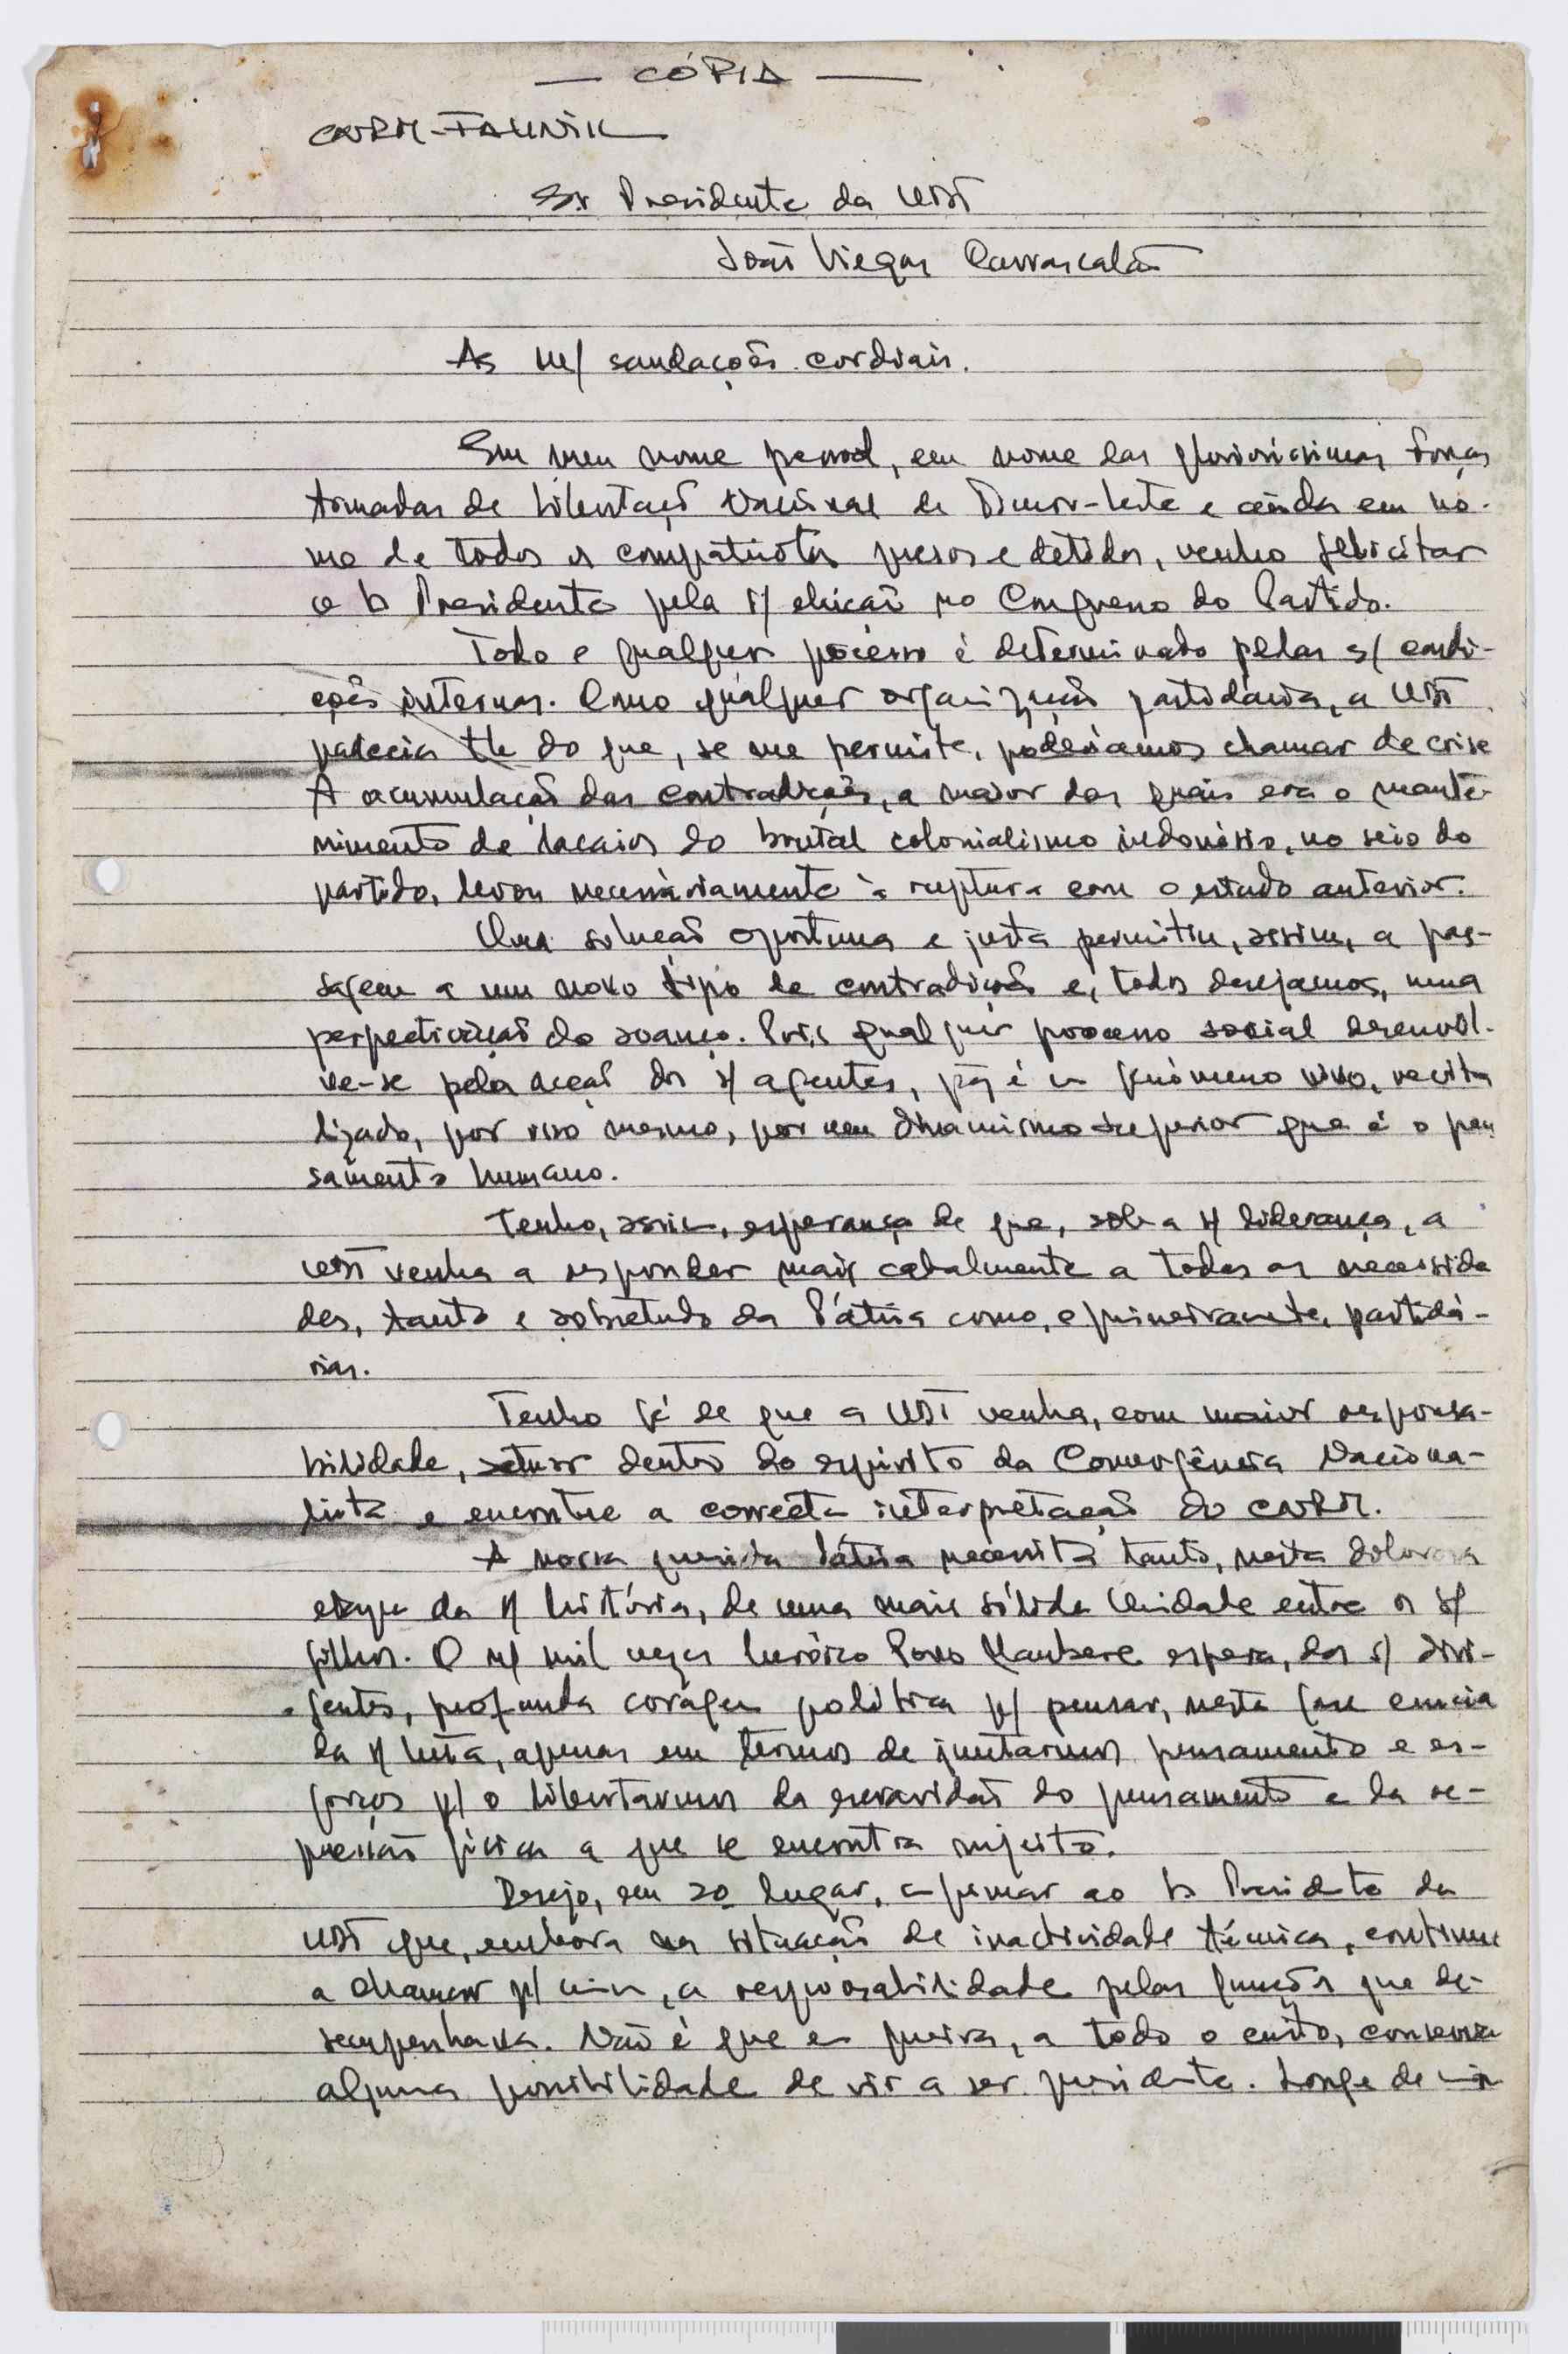 — CÓPIA —
CNRM-FALINTIL
Sr Presidente da UDT
João Viegas Carrascalão
As m/ saudações cordiais.
Em meu nome pessoal, em nome das gloriosíssimas Forças
Armadas de Libertação Nacional de Timor-Leste e ainda em no-
me de todos os compatriotas presos e detidos, venho felicitar
o Sr Presidente pela s/ eleição no Congresso do Partido.
Todo e qualquer processo é determinado pelas s/ condi-
ções internas. Como qualquer organização partidária, a UDT
padecia do que, se me permite, poderíamos chamar de crise
A acumulação das contradições, a maior das quais era o mante-
nimento de lacaios do brutal colonialismo indonésio, no seio do
partido, levou necessàriamente à ruptura com o estado anterior.
Uma solução oportuna e justa permitiu, assim, a pas-
sagem a um novo tipo de contradições e, todos desejamos, numa
perspectivação do avanço. Pois qualquer processo social desenvol-
ve-se pela acção dos s/ agentes, pq é um fenómeno vivo, revita
lizado, por isso mesmo, por um dinamismo superior que é o pen
samento humano.
Tenho, assim, esperança de que, sob a s/ liderança, a
UDT venha a responder mais cabalmente a todas as necessida
des, tanto e sobretudo da Pátria como, e primeiramente, partidá-
rias.
Tenho fé de que a UDT venha, com maior responsa-
bilidade, actuar dentro do espírito da Convergência Naciona-
lista e encontre a correcta interpretação do CNRM.
A nossa querida Pátria necessita tanto, nesta dolorosa
etapa da n/ história, de uma mais sólida Unidade entre os s/
filhos. O n/ mil vezes heróico Povo Maubere espera, dos s/ diri-
gentes, profunda coragem política p/ pensar, nesta fase crucial
da n/ luta, apenas em termos de juntarmos pensamento e es-
forços p/ o libertarmos da escravidão do pensamento e da re-
pressão física a que se encontra sujeito.
Desejo, em 2o lugar, afirmar ao Sr Presidente da
UDT que, embora na situação de inactividade técnica, continuo
a chamar p/ mim, a responsabilidade pelas funções que de-
sempenhava. Não é que eu queira, a todo o custo, conservar
alguma possibilidade de vir a ser presidente. Longe de mim